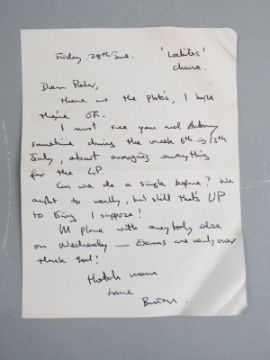 Friday, 28th June.
'Lochiles'
Chance.
Dear Peter,
Here are the photo's, I hope
they're OK.
I must see you and Antony
sometime during the week 6th → 13th
July, about arranging everything
for the LP.
Can we do a single before? We
ought to really, but still that's UP
to King I suppose!
I'll phone with anybody else
on Wednesday — Exams are nearly over
thank God!
much
love